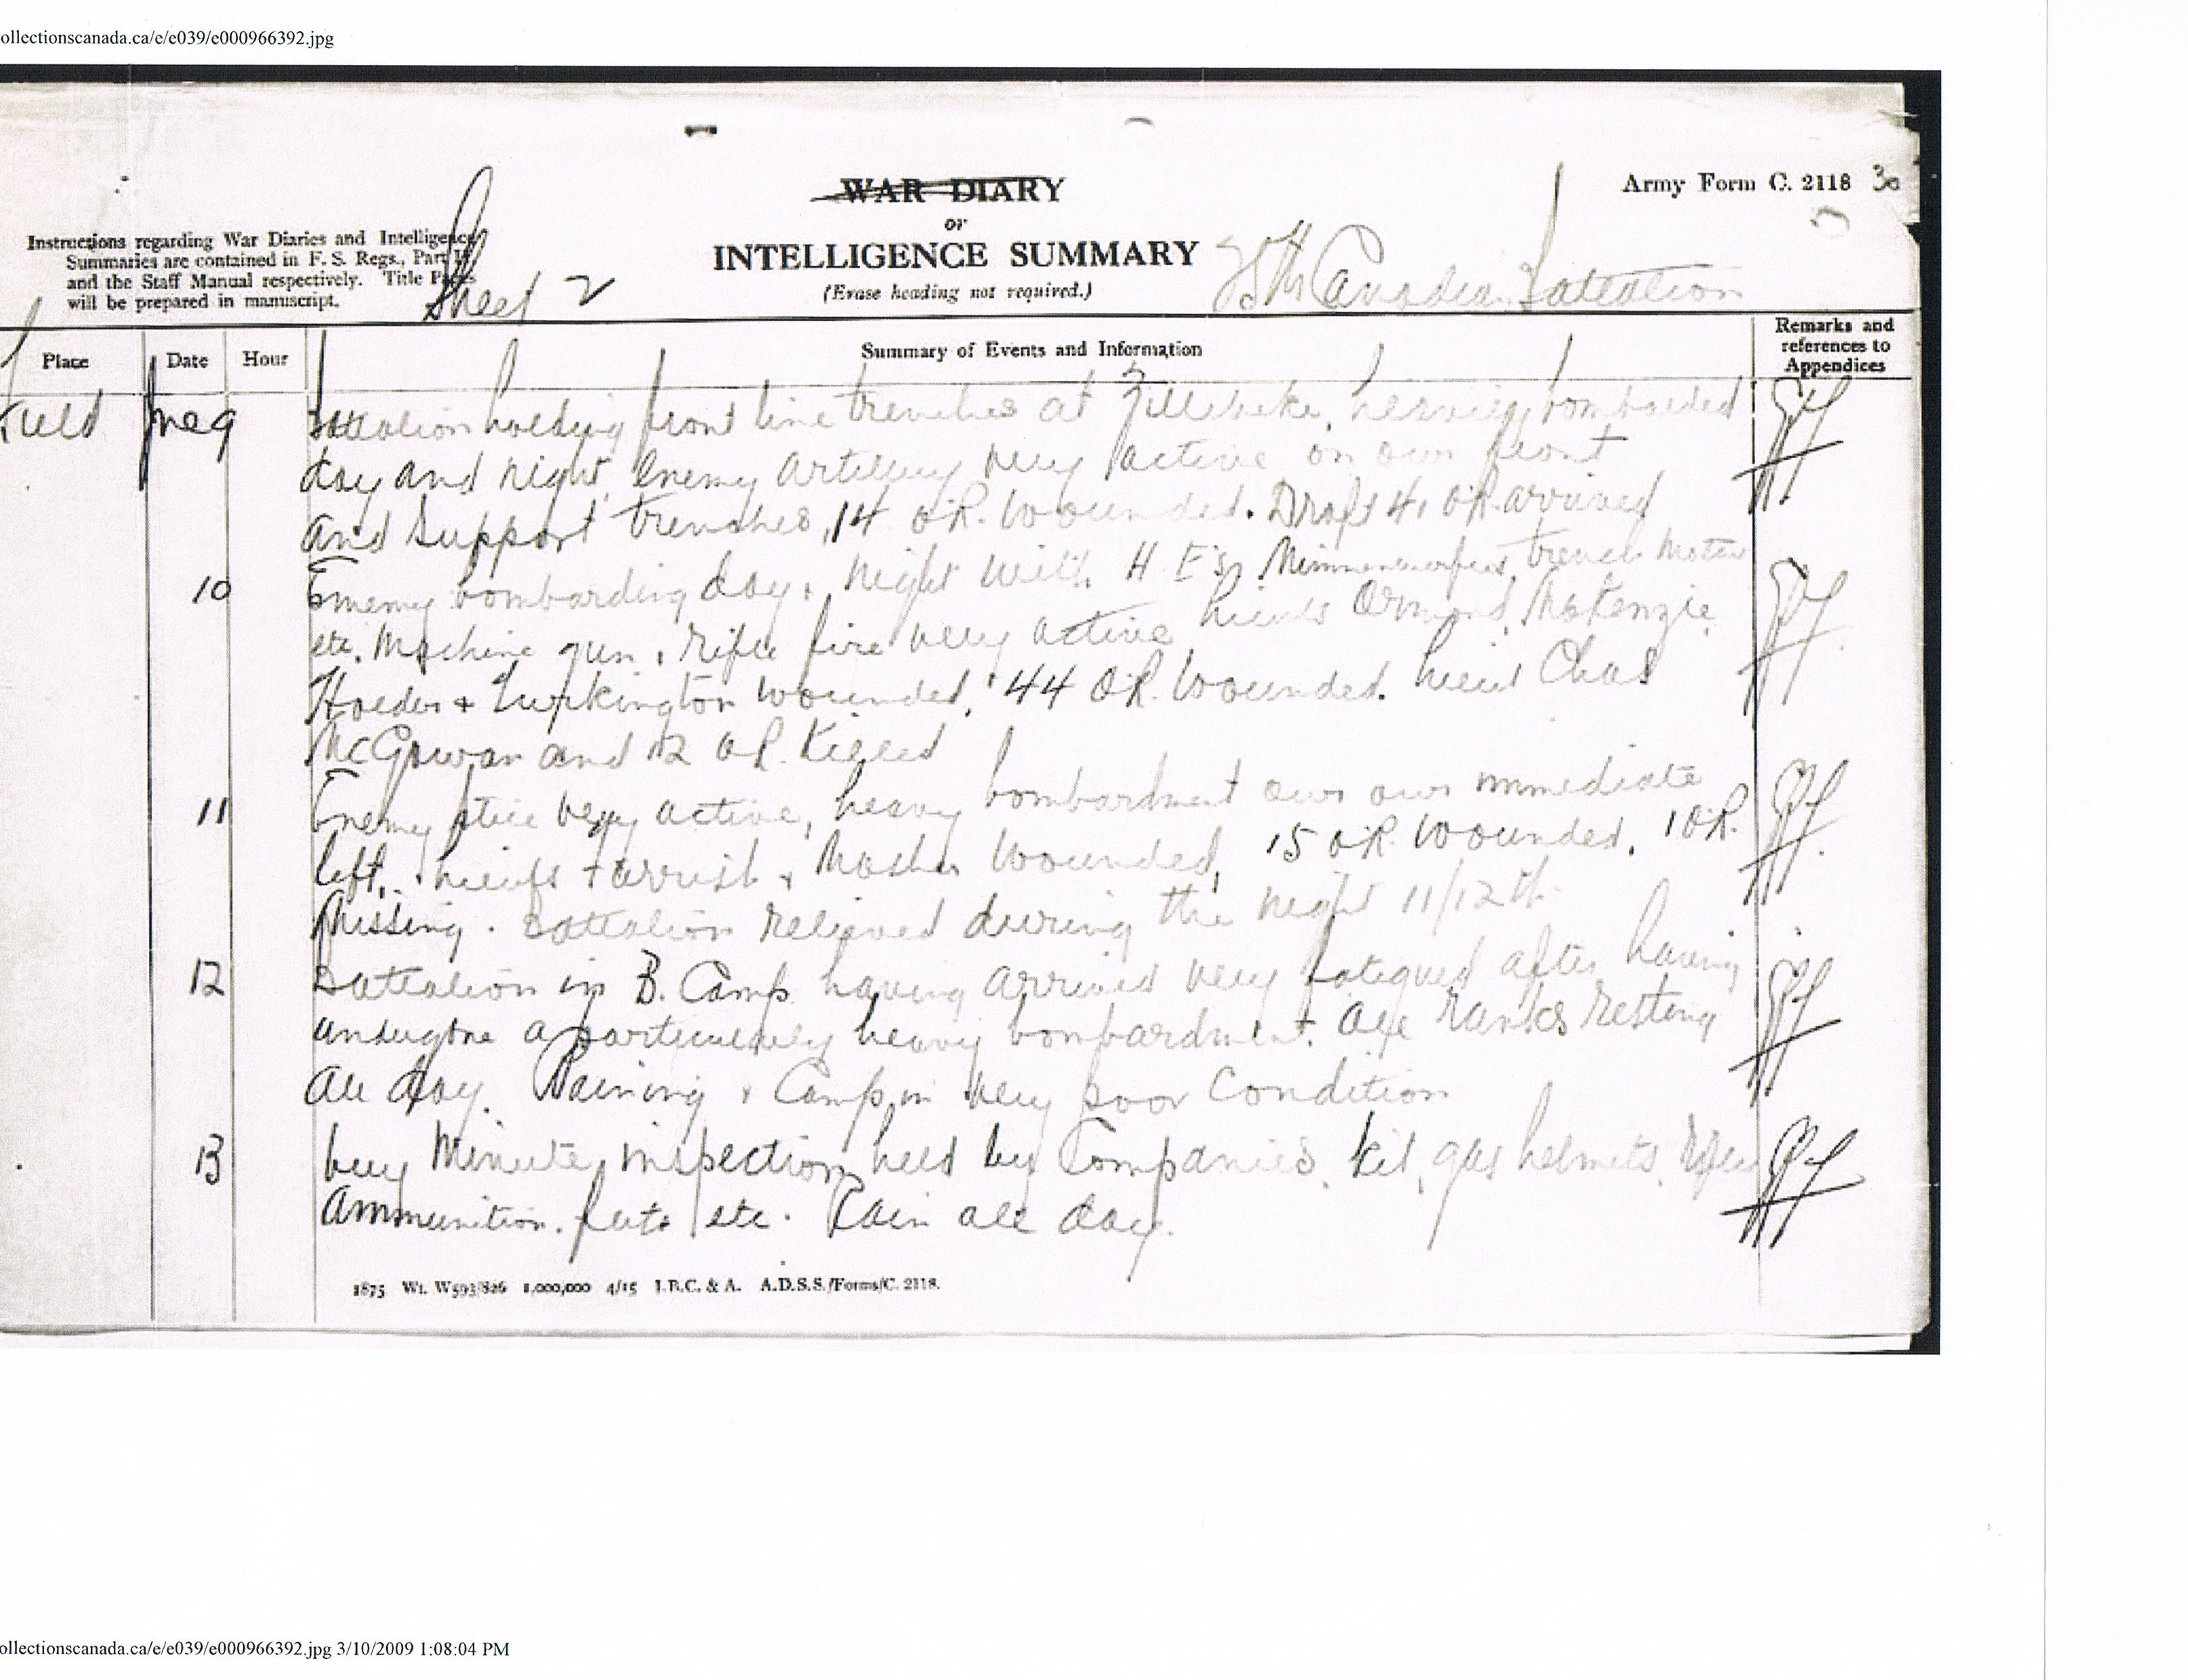 ollectionscanada.ca/e/e039/e000966392.jpg
Army Form C. 2118 30
WAR DIARY
or
INTELLIGENCE SUMMARY
(Erase heading not required.)
Instructions regarding War Diaries and Intelligence
Summaries are contained in F. S. Regs., Part II.
and the Staff Manual respectively. Title Pages
will be prepared in manuscript.
Sheet 2
Canadian Battalion
Place Date Hour Summary of Events and Information Remarks and references to Appendices
Field June 9 Battalion holding front line trenches at Zillebeke, heavily bombarded
day and night. Enemy artillery very active on our front
and support trenches, 14 O.R. wounded. Draft 41 O.R. arrived
10 Enemy bombarding day & night with H.E's, Minnenwerfers, trench Motar
etc. Machine gun & Rifle fire very active Lieuts Ormond, McKenzie
Holder & Turkington wounded, 44 O.R. wounded. Lieut Chas
McGowan and 12 O.R. Killed
11 Enemy still very active, heavy bombardment our immediate
left. Lieuts & Mosher wounded, 15 O.R. wounded, 1 O.R.
Missing. Battalion relieved during the night 11/12th
12 Battalion in B. Camp having arrived very fatigued after having
undergone a particularly heavy bombardment. All ranks resting
all day. Raining & Camp in very poor condition
13 Minute inspection held by Companies, kit, gas helmets,
Ammunition. feet etc. Rain all day.
1875 Wt. W593/826 1,000,000 4/15 J.B.C. & A. A.D.S.S./Forms/C. 2118.
ollectionscanada.ca/e/e039/e000966392.jpg 3/10/2009 1:08:04 PM